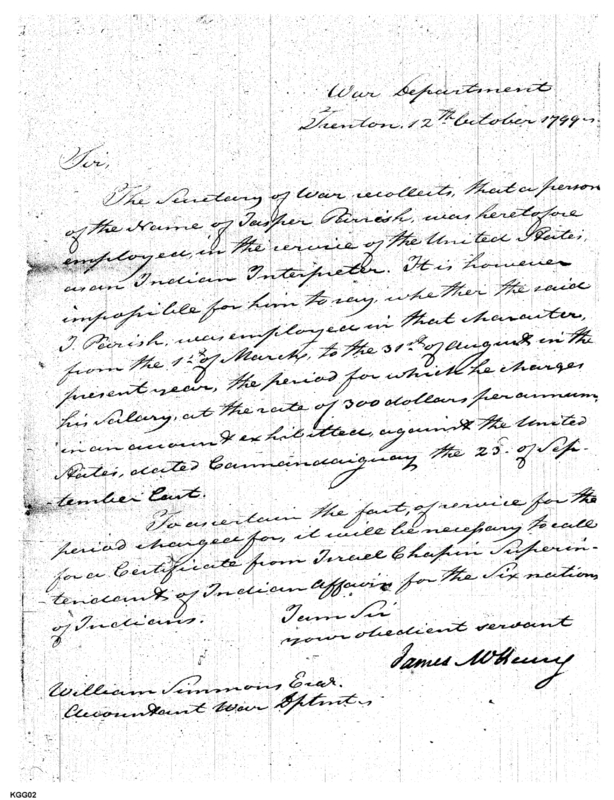 War Department
Trenton, 12th October 1799
Sir,
The Secretary of War recollects, that a person
of the Name of Jasper Parrish, was heretofore
employed, in the service of the United States,
as an Indian Interpreter. It is however
impossible for him to say, whether the said
J. Parrish, was employed in that character,
from the 1st of March, to the 31st of August in the
present year, the period for which he charges
his Salary, at the rate of 300 dollars per annum,
in an account exhibitted, against the United
States, dated Cannandaiguay the 23d of Sep-
-tember Last.
To ascertain the fact, of service for the
period charged for, it will be necessary to call
for a Certificate from Israel Chapin Superin-
tendant of Indian Affairs for the Six nations
of Indians.
I am Sir
your obedient servant
James McHenry
William Simmons Esqr.
Accountant War Dptmt
KGG02